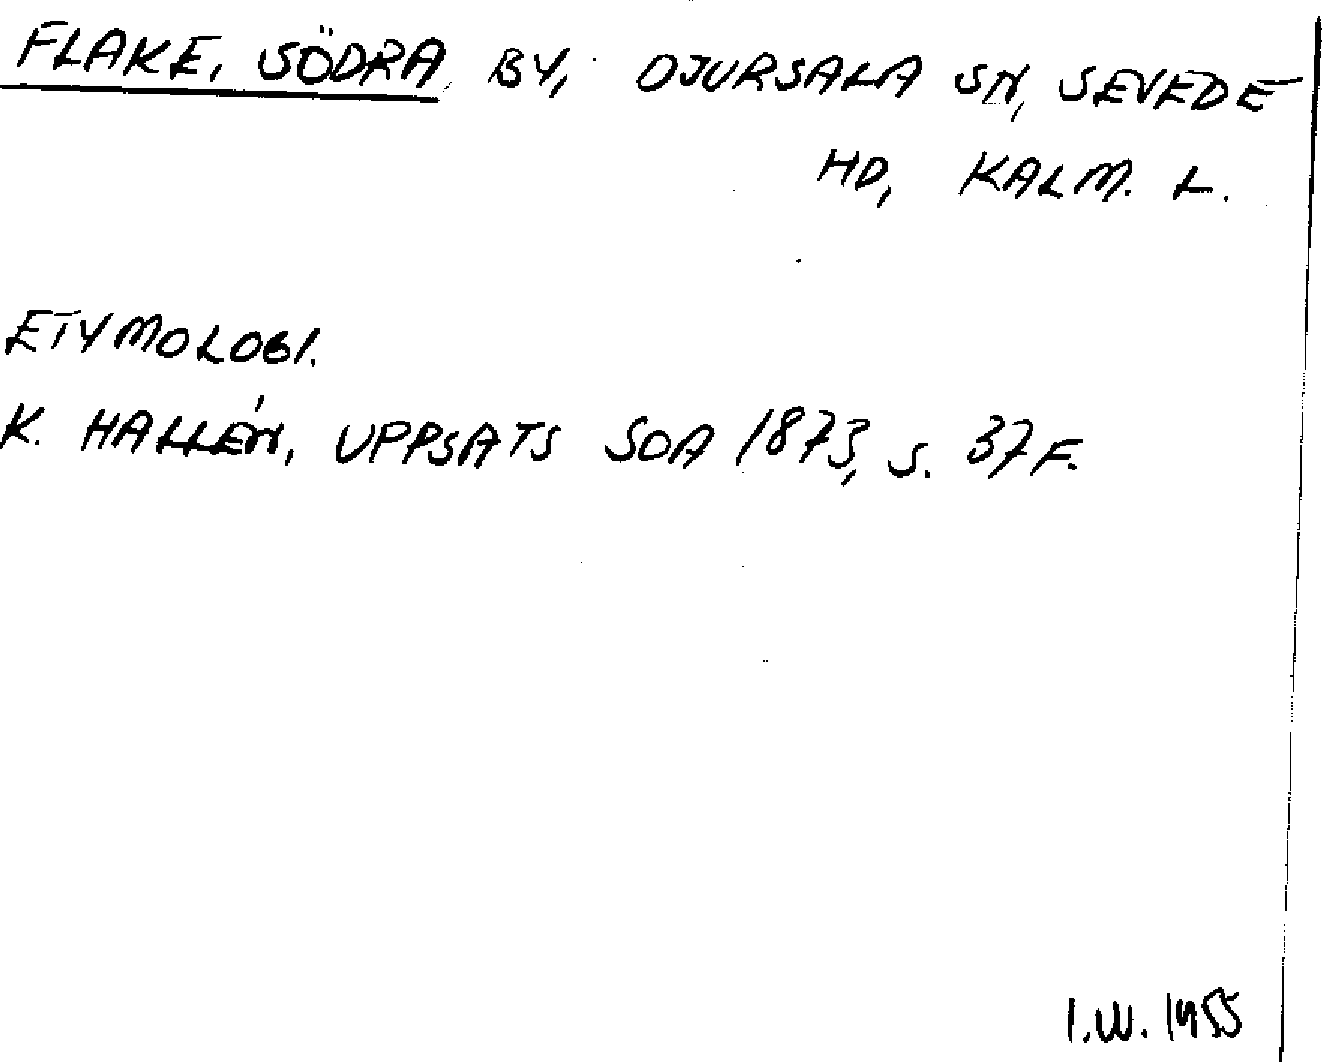 FLAKE, SÖDRA BY, DJURSALA SN, SEVEDE
HD, KALM. L.
ETYMOLOGI.
K. HALLÉN, UPPSATS SOA 1873, S. 37 F.
I.W. 1955